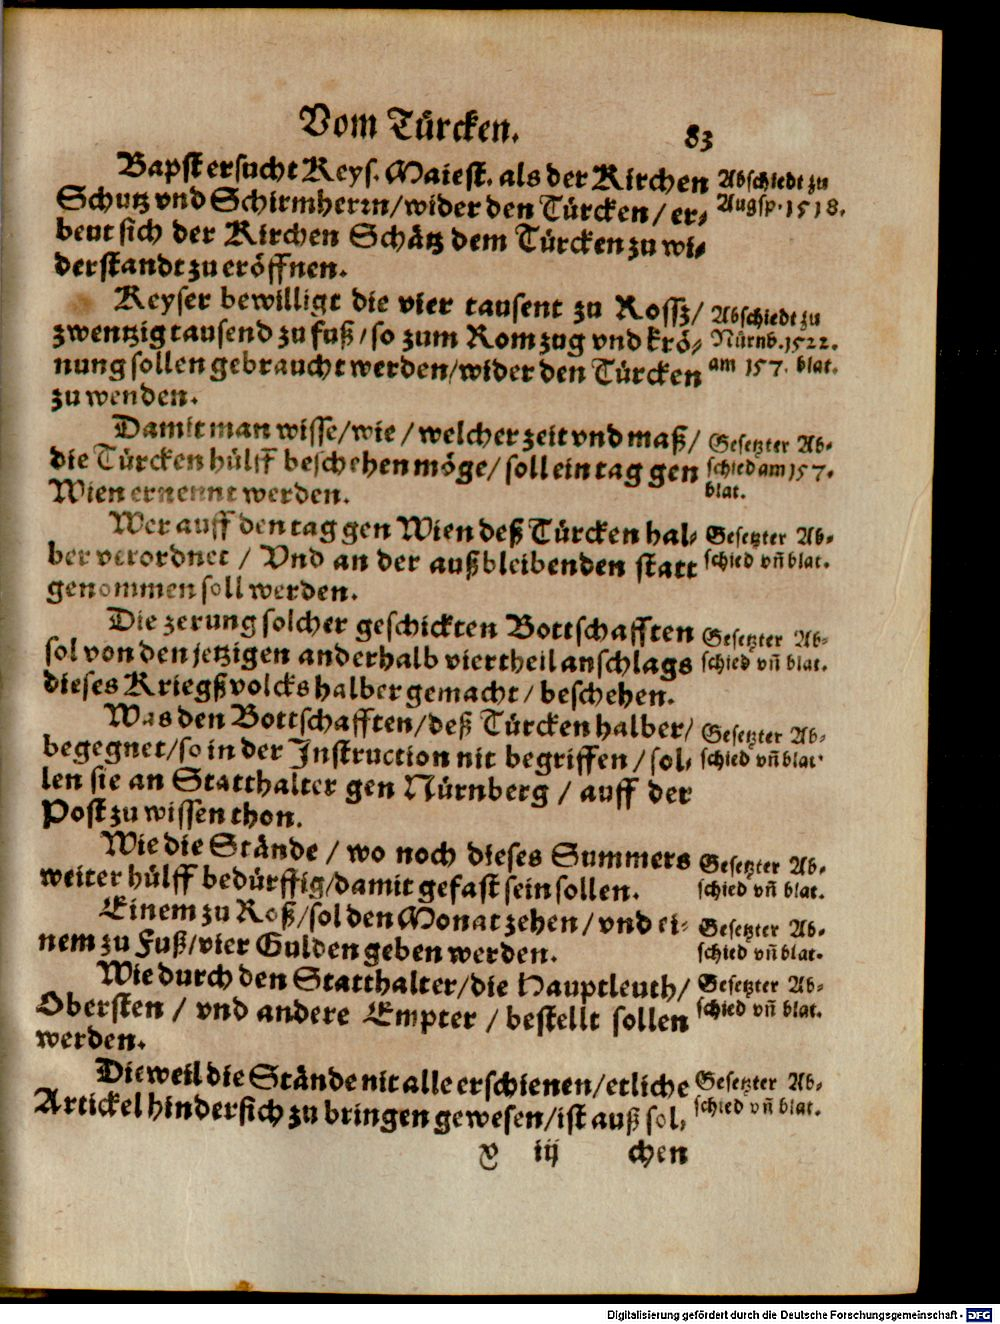 Vom Türcken. 83
Bapst ersucht Keys. Maiest. als der Kirchen
Schutz vnd Schirmherrn/wider den Türcken/er-
beut sich der Kirchen Schätz dem Türcken zu wi-
derstandt zu eröffnen.
Abschiedt zu
Augsp. 1518.
Keyser bewilligt die vier tausent zu Rossz/
zwentzig tausend zu fuß/so zum Romzug vnd krö-
nung sollen gebraucht werden/wider den Türcken
zu wenden.
Abschiedt zu
Nürnb. 1522.
am 157. blat.
Damit man wisse/wie/welcher zeit vnd maß/
die Türcken hülff beschehen möge/soll ein tag gen
Wien ernennt werden.
Gesetzter Ab-
schied am 157.
blat.
Wer auff den tag gen Wien deß Türcken hal-
ber verordnet/Vnd an der außbleibenden statt
genommen soll werden.
Gesetzter Ab-
schied vñ blat.
Die zerung solcher geschickten Bottschafften
sol von den jetzigen anderhalb viertheil anschlags
dieses Kriegßvolcks halber gemacht/beschehen.
Gesetzter Ab-
schied vñ blat.
Was den Bottschafften/deß Türcken halber/
begegnet/so in der Instruction nit begriffen/sol-
len sie an Statthalter gen Nürnberg/auff der
Post zu wissen thon.
Gesetzter Ab-
schied vñ blat.
Wie die Stände/wo noch dieses Summers
weiter hülff bedürffig/damit gefast sein sollen.
Gesetzter Ab-
schied vñ blat.
Einem zu Roß/sol den Monat zehen/vnd ei-
nem zu Fuß/vier Gulden geben werden.
Gesetzter Ab-
schied vñ blat.
Wie durch den Statthalter/die Hauptleuth/
Obersten/vnd andere Empter/bestellt sollen
werden.
Gesetzter Ab-
schied vñ blat.
Dieweil die Stände nit alle erschienen/etliche
Artickel hindersich zu bringen gewesen/ist auß sol-
Gesetzter Ab-
schied vñ blat.
iij chen
Digitalisierung gefördert durch die Deutsche Forschungsgemeinschaft - DFG